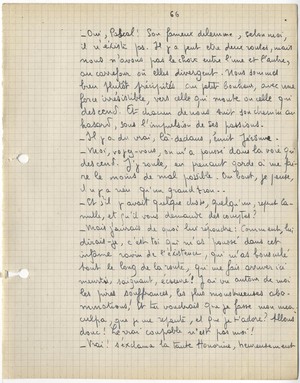 66
— Oui, Pascal ! Son fameux dilemme, selon moi,
il n'existe pas. Il y a peut-être deux routes, mais
nous n'avons pas le choix entre l'une et l'autre,
au carrefour où elles divergent. Nous sommes
bien plutôt précipités au petit bonheur, avec une
force irrésistible, vers celle qui monte ou celle qui
descend. Et chacun de nous suit son chemin au
hasard, sous l'impulsion de ses passions.
— Il y a du vrai, là-dedans, émit Jérôme.
— Moi, voyez-vous, on m'a poussé dans la voie qui
descend. J'y roule, en prenant garde à me fai-
re le moins de mal possible. Au bout, je pense,
il n'y a rien qu'un grand trou...
— Et s'il y avait quelque chose, quelqu'un,
et qu'il vous demande des comptes ?
— Mais j'aurais de quoi lui répondre : Comment, lui
dirais-je, c'est toi qui m'as poussé dans cet
infâme ravin de l'existence, qui m'as bousculé
tout le long de la route, qui me fais arriver ici
meurtri, saignant, écoeuré ! J'ai eu autour de moi
les pires souffrances, les plus monstrueuses abo-
minations ! et tu voudrais que je fasse mon mea
culpa, que je me repente, et que je t'adore ! Allons
donc ! Le vrai coupable n'est pas moi !
— Vrai ! s'exclama la tante Honorine, heureusement